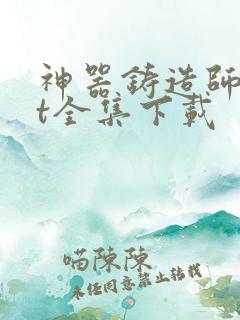 神器鋳造師
t全集下載
喵陳陳
未經同意禁止轉載